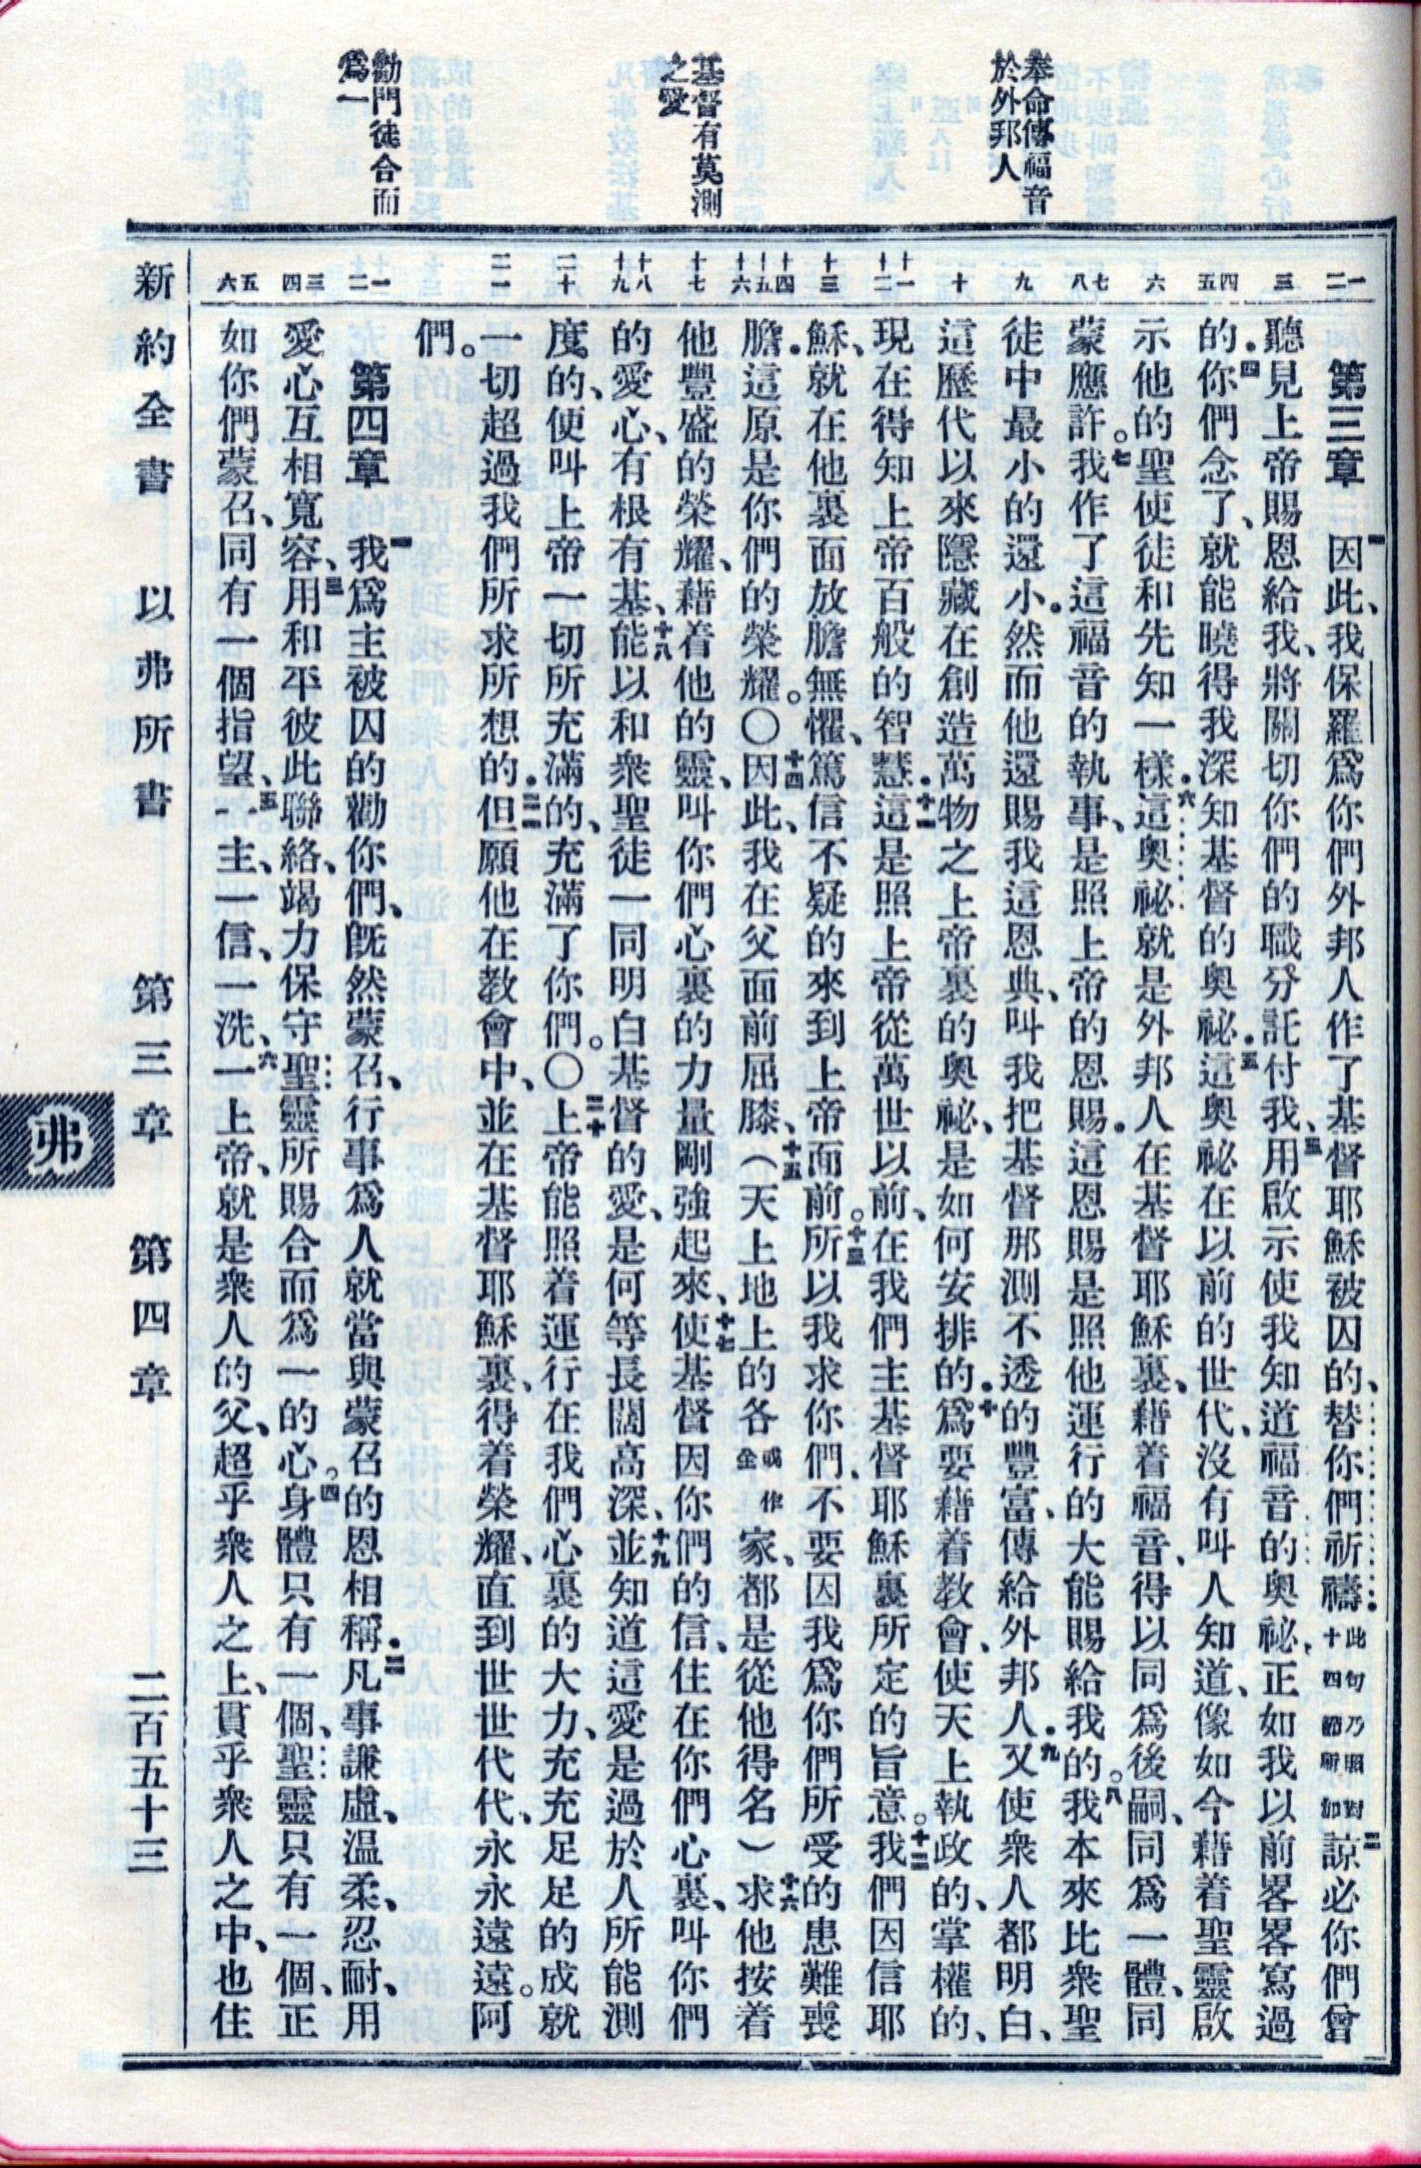 奉命傳福音
於外邦人
基督有莫測
之愛
勸門徒合而
爲一
一二
三
四五
六
七八
九
十
十一十二
十三
十四十五十六
十七
十八十九
二十
二一
一二
三四
五六
第三章 一因此、我保羅爲你們外邦人作了基督耶穌被囚的、替你們祈禱．此句乃照對十四節所加二諒必你們曾
聽見上帝賜恩給我、將關切你們的職分託付我、三用啟示使我知道福音的奧祕、正如我以前畧畧寫過
的．四你們念了、就能曉得我深知基督的奧祕．五這奧祕在以前的世代、沒有叫人知道、像如今藉着聖靈啟
示他的聖使徒和先知一樣．六這奧祕就是外邦人在基督耶穌裏、藉着福音、得以同爲後嗣、同爲一體、同
蒙應許。七我作了這福音的執事、是照上帝的恩賜．這恩賜是照他運行的大能賜給我的。八我本來比衆聖
徒中最小的還小．然而他還賜我這恩典、叫我把基督那測不透的豐富、傳給外邦人．九又使衆人都明白、
這歷代以來隱藏在創造萬物之上帝裏的奧祕、是如何安排的．十爲要藉着教會、使天上執政的、掌權的、
現在得知上帝百般的智慧．十一這是照上帝從萬世以前、在我們主基督耶穌裏所定的旨意。十二我們因信耶
穌、就在他裏面放膽無懼、篤信不疑的來到上帝面前。十三所以我求你們、不要因我爲你們所受的患難喪
膽．這原是你們的榮耀。〇十四因此、我在父面前屈膝、十五（天上地上的各或作全家、都是從他得名）十六求他按着
他豐盛的榮耀、藉着他的靈、叫你們心裏的力量剛強起來、十七使基督因你們的信、住在你們心裏、叫你們
的愛心、有根有基、十八能以和衆聖徒一同明白基督的愛、是何等長闊高深、十九並知道這愛是過於人所能測
度的、便叫上帝一切所充滿的、充滿了你們。〇二十上帝能照着運行在我們心裏的大力、充充足足的成就
一切超過我們所求所想的．二一但願他在教會中、並在基督耶穌裏、得着榮耀、直到世世代代、永永遠遠。阿
們。
第四章 一我爲主被囚的勸你們、旣然蒙召、行事爲人就當與蒙召的恩相稱．二凡事謙虛、溫柔、忍耐、用
愛心互相寬容、三用和平彼此聯絡、竭力保守聖靈所賜合而爲一的心。四身體只有一個、聖靈只有一個、正
如你們蒙召、同有一個指望、五一主、一信、一洗、六一上帝、就是衆人的父、超乎衆人之上、貫乎衆人之中、也住
新約全書 以弗所書 第三章 第四章 二百五十三
弗